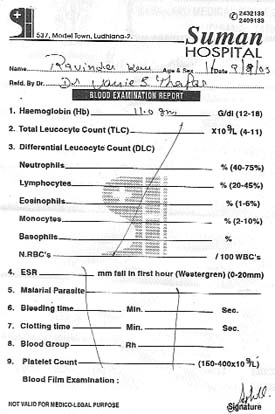 537, Model Town, Ludhiana-2.
2432133
2409133
Suman
HOSPITAL
Name Ravinder Kaur Age & Sex Date 9/9/03
Refd. By Dr. Dr.
BLOOD EXAMINATION REPORT
1. Haemoglobin (Hb) 11.0 gm G/dl (12-18)
2. Total Leucocyte Count (TLC) X10⁹/L (4-11)
3. Differential Leucocyte Count (DLC)
Neutrophils % (40-75%)
Lymphocytes % (20-45%)
Eosinophils % (1-6%)
Monocytes % (2-10%)
Basophils %
N.RBC's / 100 WBC's
4. ESR mm fall in first hour (Westergren) (0-20mm)
5. Malarial Parasite
6. Bleeding time Min. Sec.
7. Clotting time Min. Sec.
8. Blood Group Rh
9. Platelet Count (150-400x10⁹/L)
Blood Film Examination :
NOT VALID FOR MEDICO-LEGAL PURPOSE
Signature